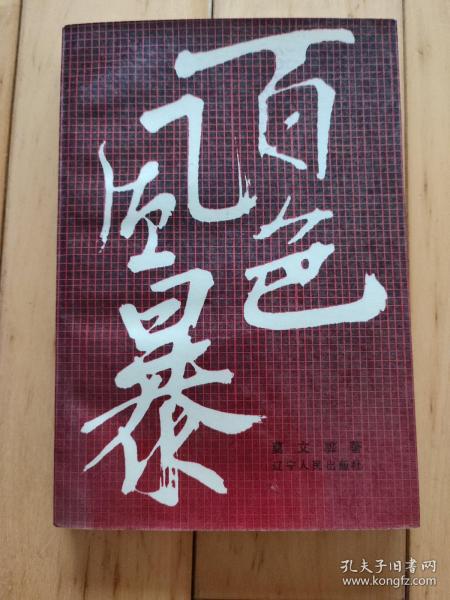 百色
風暴
莫文骅著
辽宁人民出版社
孔夫子旧书网
www.kongfz.com